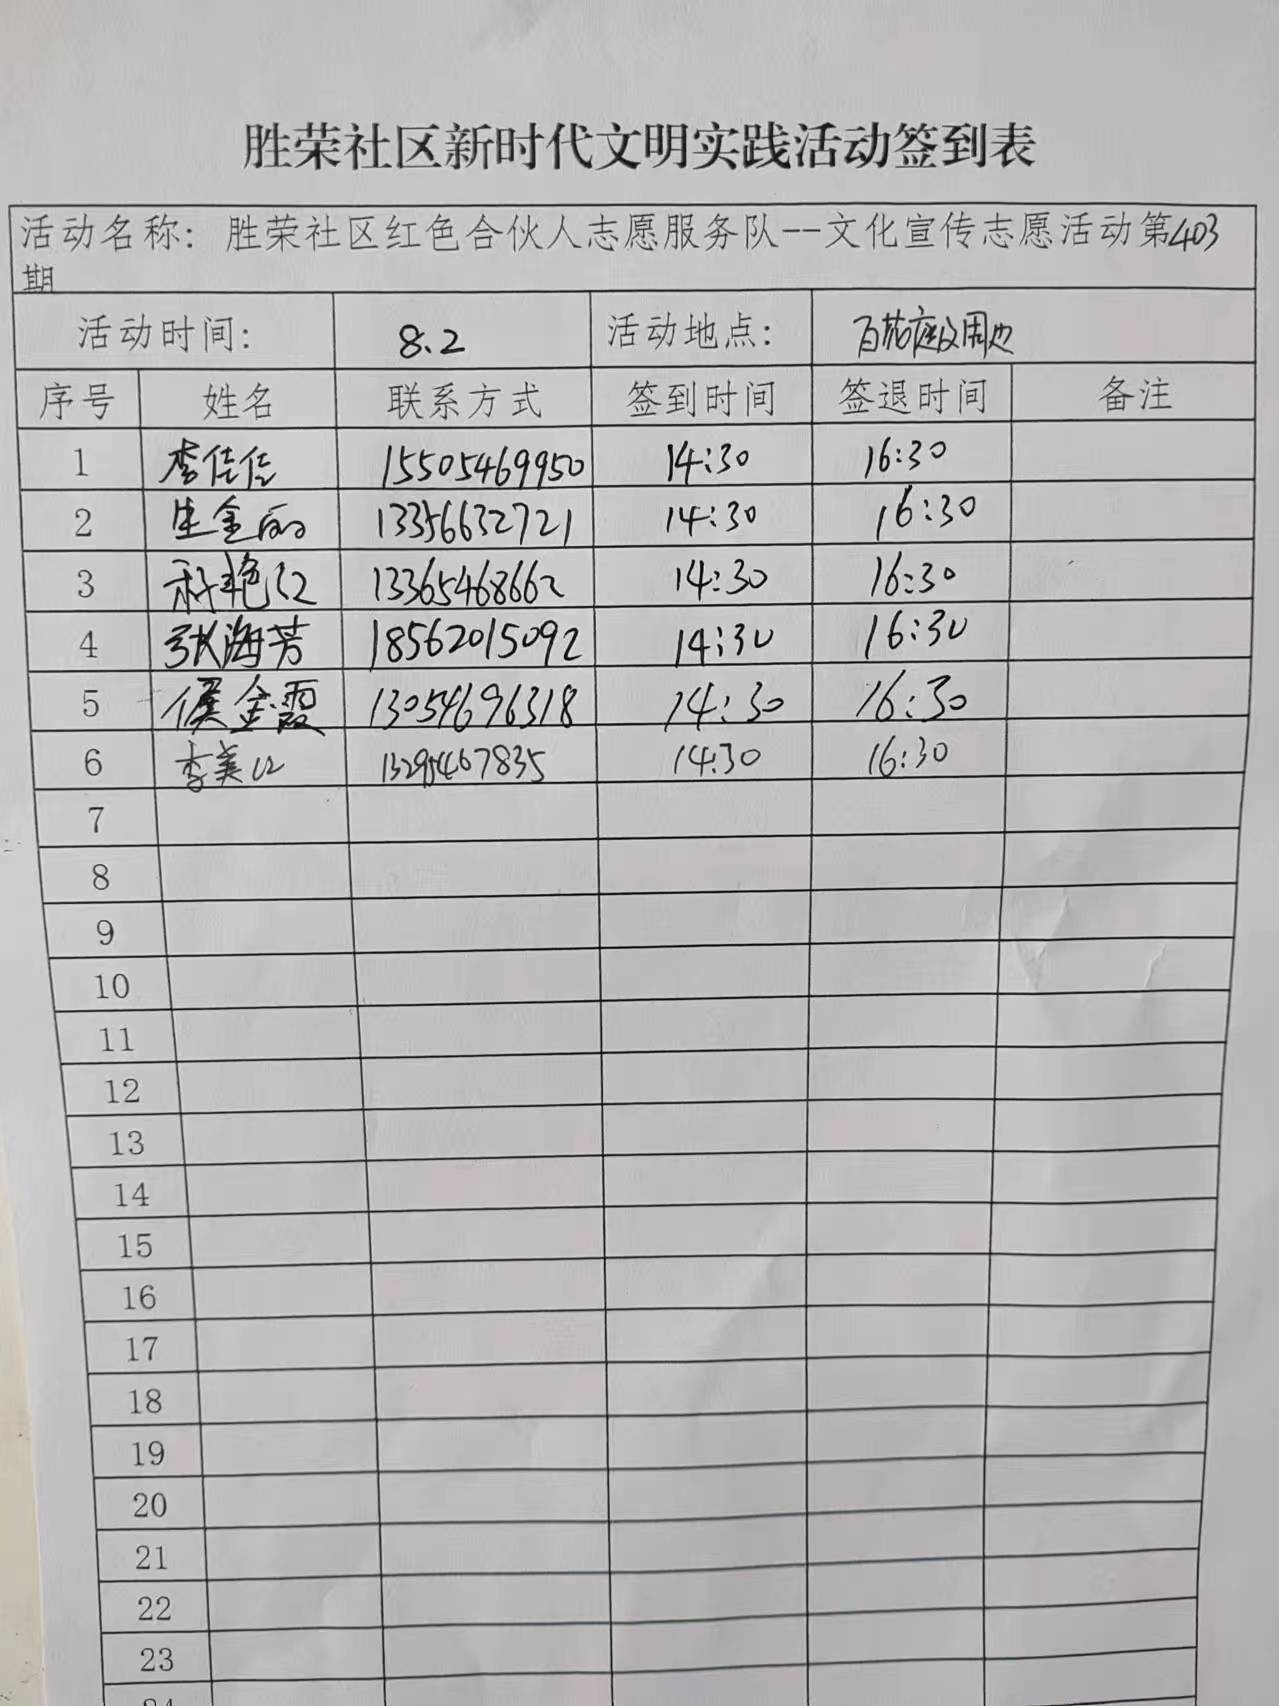 胜荣社区新时代文明实践活动签到表
活动名称：胜荣社区红色合伙人志愿服务队--文化宣传志愿活动第403
期
活动时间： 8.2 活动地点： 百花庭及周边
序号 姓名 联系方式 签到时间 签退时间 备注
1 李佳佳 15505469950 14:30 16:30
2 生金丽 13356632721 14:30 16:30
3 艳红 13365468662 14:30 16:30
4 张海芳 18562015092 14:30 16:30
5 侯金霞 13054696318 14:30 16:30
6 李美红 13295467835 14:30 16:30
7
8
9
10
11
12
13
14
15
16
17
18
19
20
21
22
23